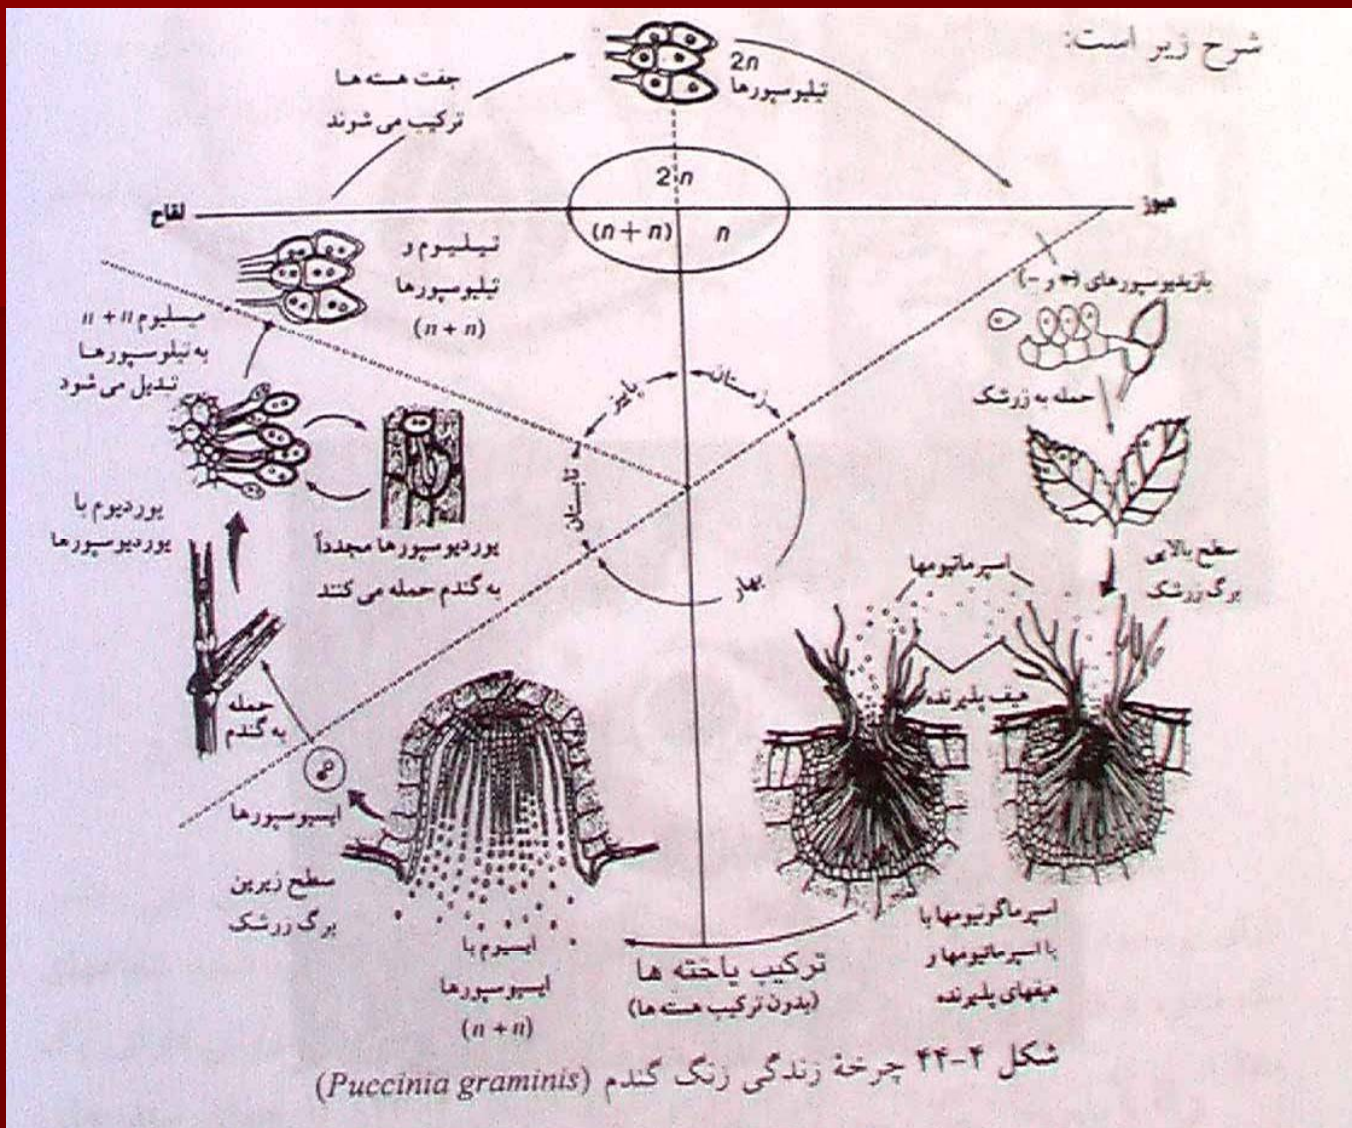 شرح زیر است:
2n
تیلیوسپورها
جفت هسته ها
ترکیب می شوند
2n
(n+n)
n
لقاح
میوز
تیلیوم و
تیلیوسپورها
(n+n)
میسلیوم n+n
به تیلوسپورها
تبدیل می شود
بازیدیوسپورهای (+ و -)
حمله به زرشک
پاییز
زمستان
تابستان
بهار
یوردیوم با
یوردیوسپورها
یوردیوسپورها مجدداً
به گندم حمله می کنند
سطح بالایی
برگ زرشک
اسپرماتیومها
هیف پذیرنده
حمله
به گندم
ایسیوسپورها
سطح زیرین
برگ زرشک
ایسیوم با
ایسیوسپورها
(n+n)
ترکیب یاخته ها
(بدون ترکیب هسته ها)
اسپرماگونیومها با
با اسپرماتیومها و
هیفهای پذیرنده
شکل ۴-۴۴ چرخهٔ زندگی زنگ گندم (Puccinia graminis)